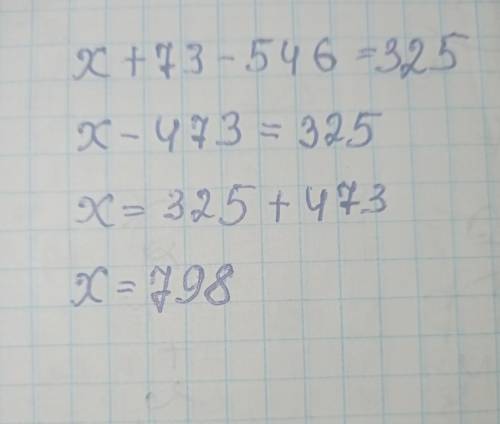 x + 73 - 546 = 325
x - 473 = 325
x = 325 + 473
x = 798